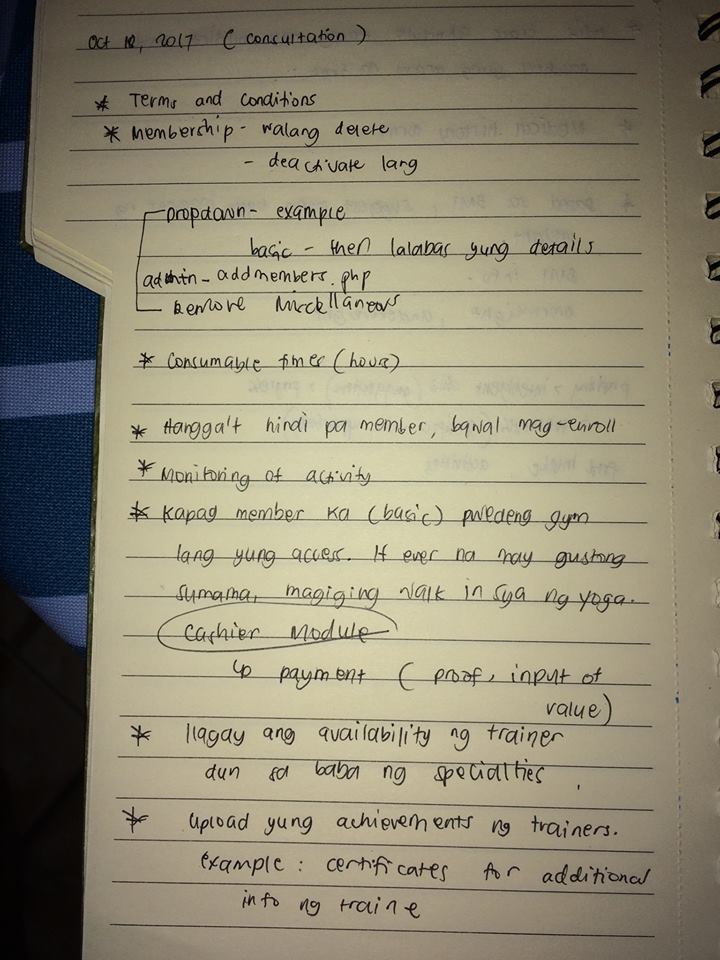 Oct 12, 2017 (consultation)
* Terms and Conditions
* Membership - walang delete
- deactivate lang
Dropdown - example
basic - then lalabas yung details
admin - addmembers.php
Remove Miscellaneous
* Consumable times (hour)
* Hangga't hindi pa member, bawal mag-enroll
* Monitoring of activity
* Kapag member ka (basic) pwedeng gym
lang yung access. If ever na may gustong
sumama, magiging walk in sya ng yoga.
Cashier Module
↳ payment (proof, input of
value)
* Ilagay ang availability ng trainer
dun sa baba ng specialties
* Upload yung achievements ng trainers.
example: certificates for additional
info ng traine